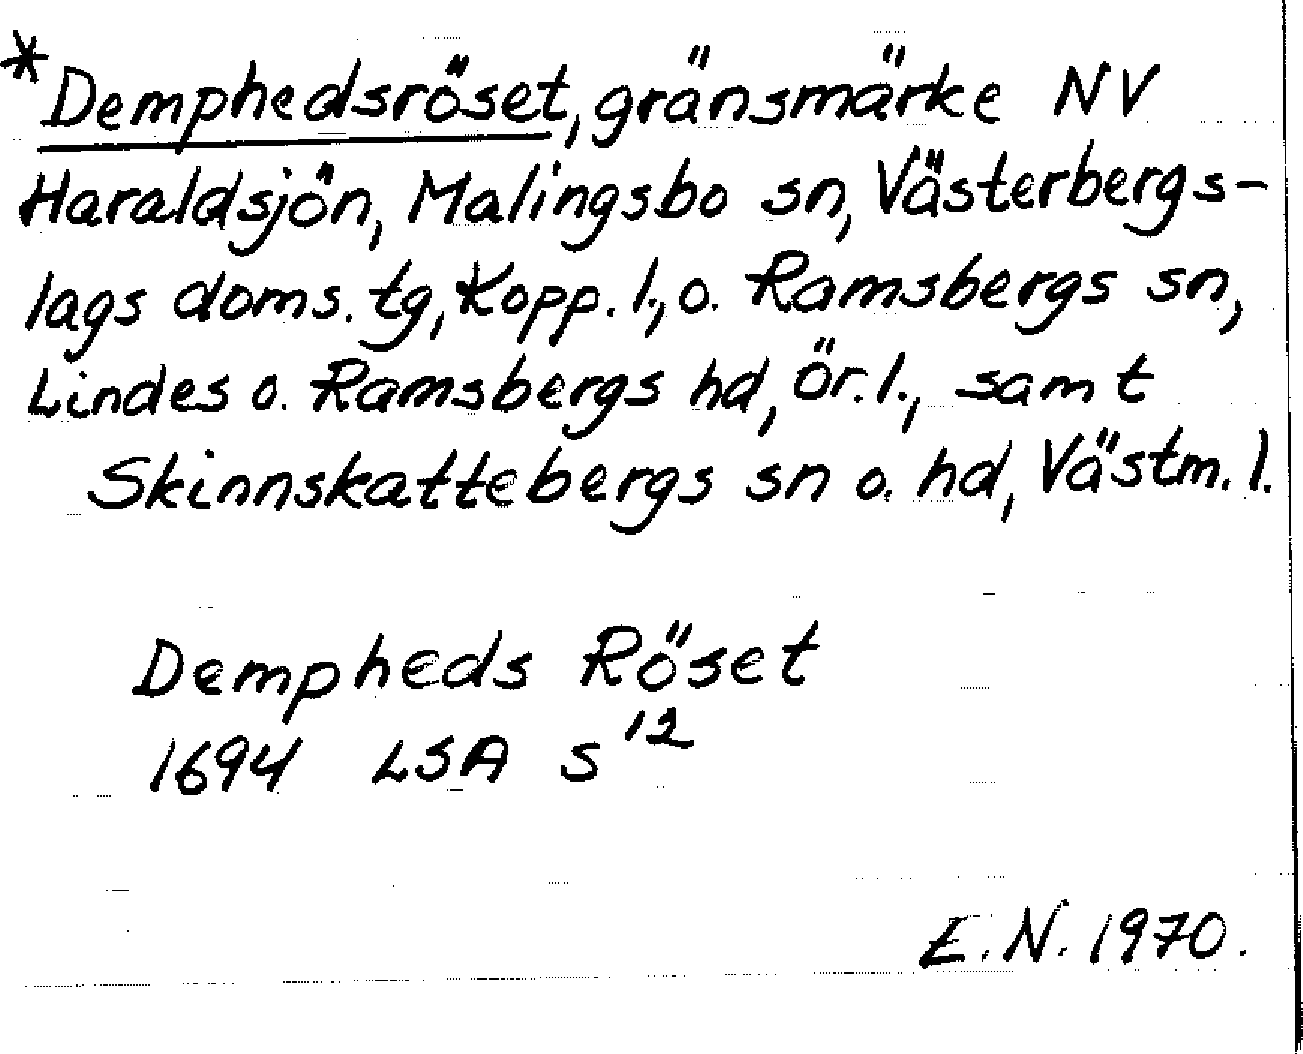 *Demphedsröset, gränsmärke NV
Haraldsjön, Malingsbo sn, Västerbergs-
lags doms. tg, Kopp. l., o. Ramsbergs sn,
Lindes o. Ramsbergs hd, Ör. l., samt
Skinnskattebergs sn o. hd, Västm. l.
Dempheds Röset
1694 LSA S 12
E.N. 1970.